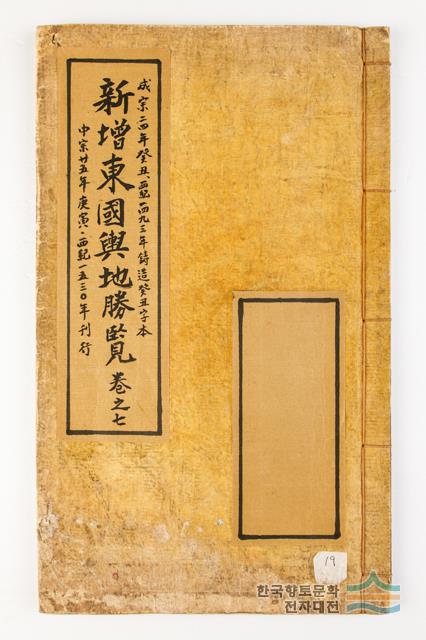 成宗二四年癸丑·西紀一四九三年鑄造癸丑字本
新增東國輿地勝覽 卷之七
中宗廿五年庚寅·西紀一五三〇年刊行
19
한국향토문화
전자대전